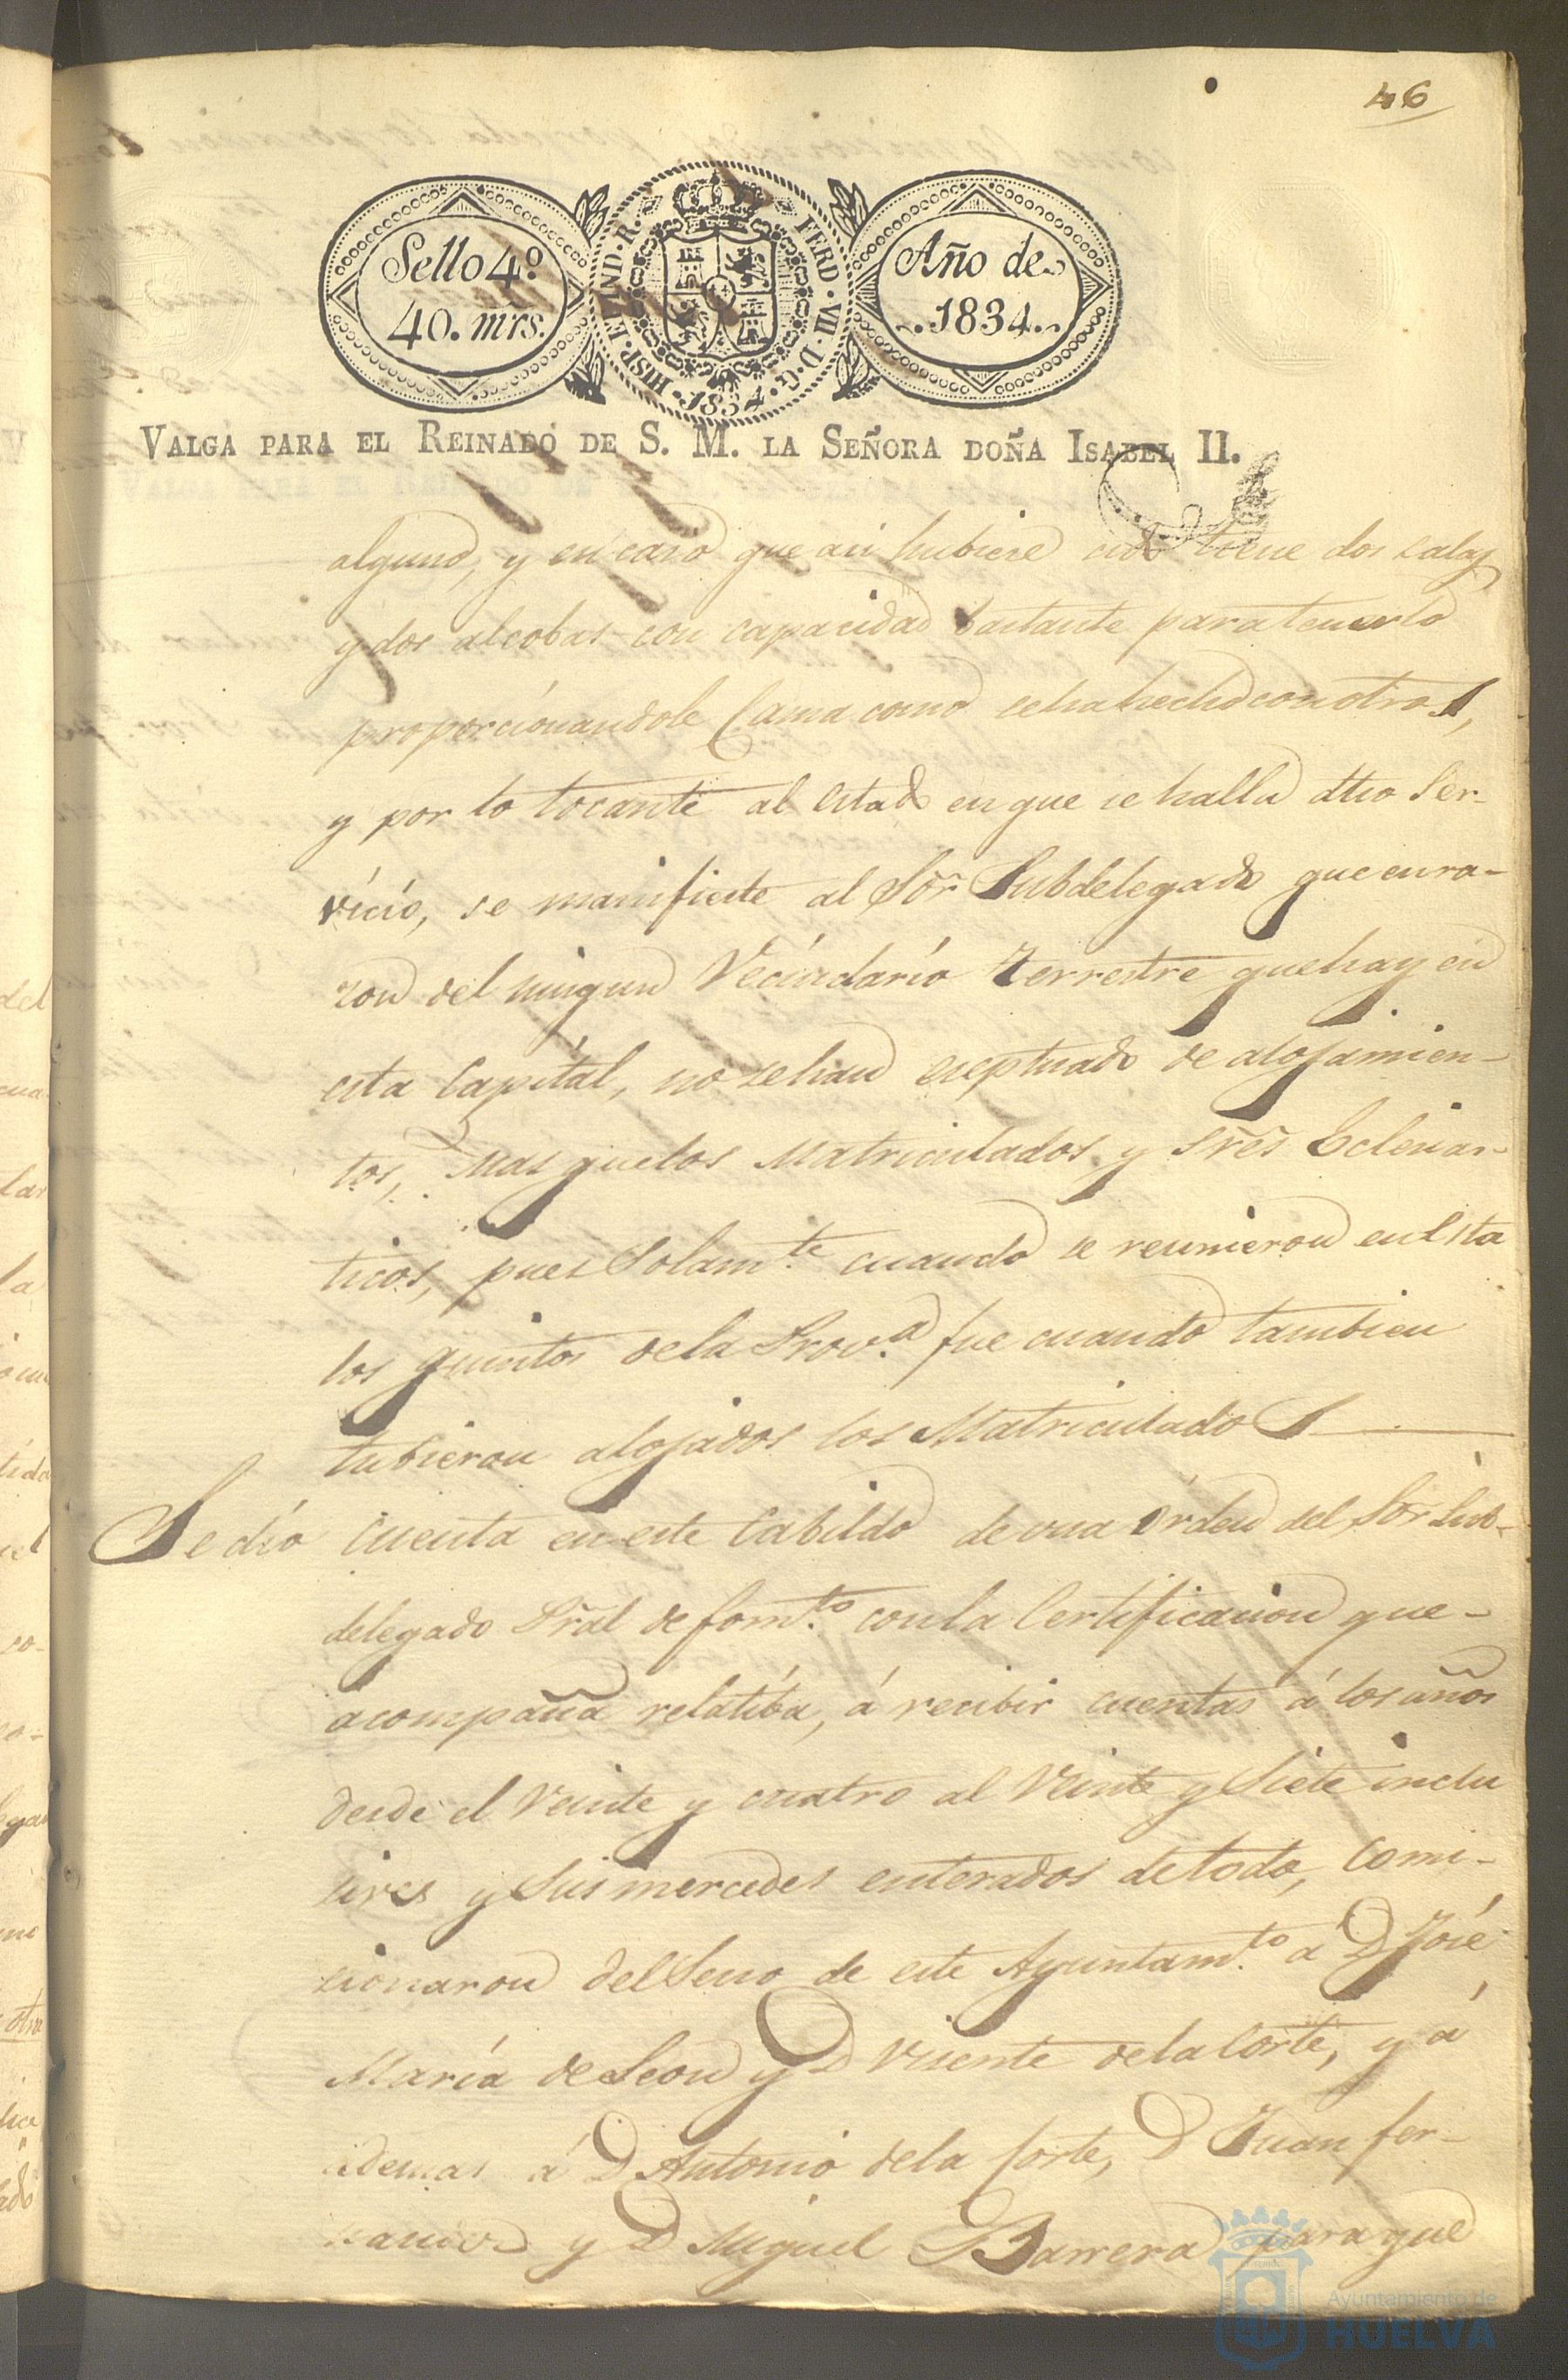 46
Sello 4º
40. mrs.
HISP. ET IND. R.
FERD. VII. D. G.
1834
Año de
1834.
VALGA PARA EL REINADO DE S. M. LA SEÑORA DOÑA ISABEL II.
alguno, y en caso que asi hubiese sido tiene dos salas
y dos alcobas con capacidad bastante para tenerlo
proporcionandole Cama como se ha hecho con otros,
y por lo tocante al estado en que se halla dho Ser-
vicio, se manifieste al Sõr Subdelegado que en ra-
zon del ningun Vecindario terrestre que hay en
esta Capital, no se han eceptuado de alojamien-
tos, mas que los Matriculados y Sres Eclesias-
ticos, pues Solam.te cuando se reunieron en Esta
los quintos de la Prov.a fue cuando tambien
tubieron alojados los Matriculados
Se dio cuenta en este Cabildo de una órden del Sõr Sub-
delegado Pral de fom.to con la Certificacion que-
acompaña relatiba, á recibir cuentas á los años
desde el Veinte y cuatro al Veinte y Siete inclu
sives y Sus mercedes enterados de todo, comi-
cionaron del Seno de este Ayuntam.to a D José
María de Leon y D Vicente de la Corte, y á
ademas á D Antonio de la Corte, D Juan fer-
y D Miguel Barrera para que
Ayuntamiento de
HUELVA